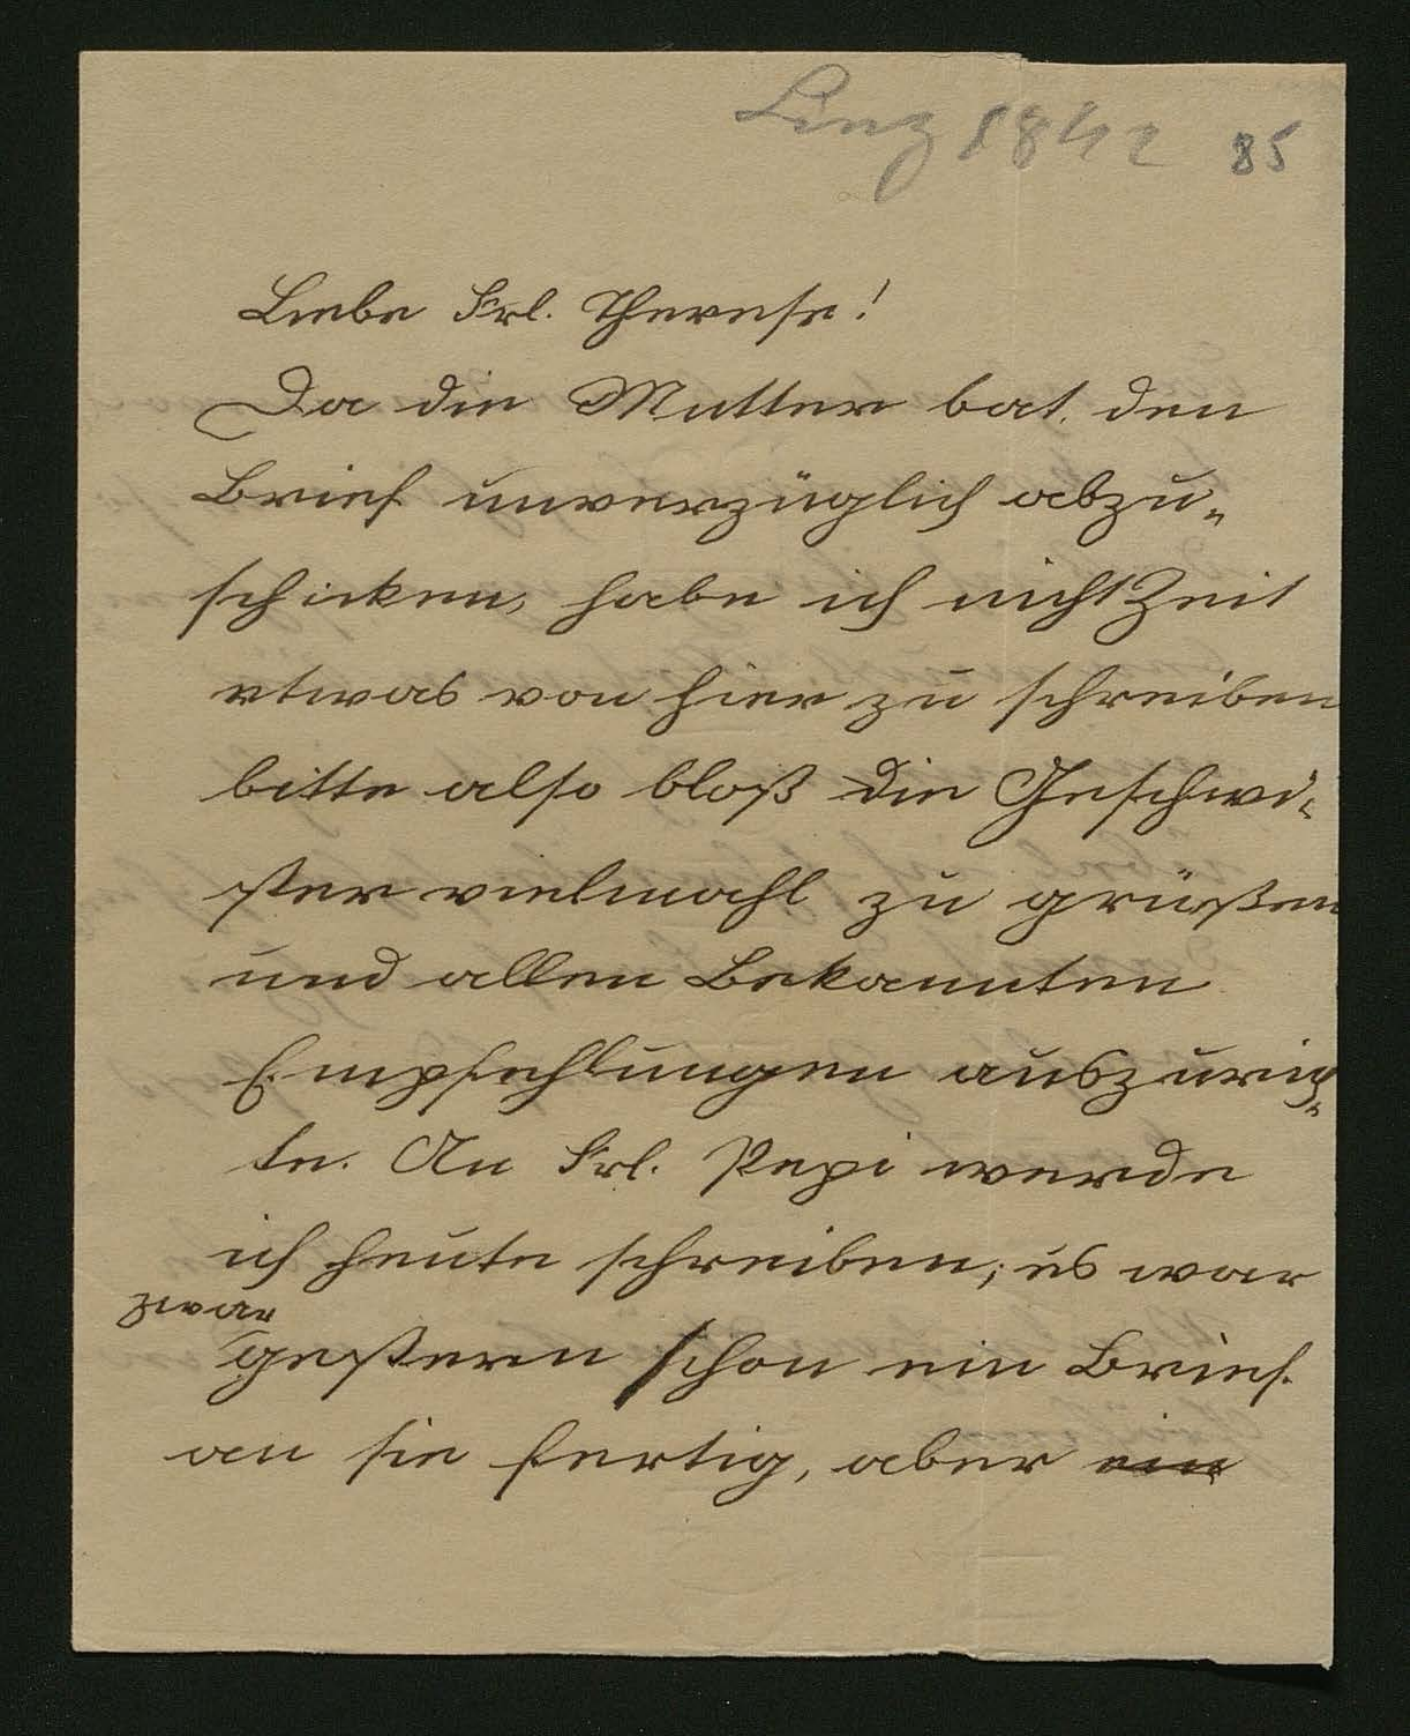 Linz 1842 85
Liebe Frl. Therese!
Da die Mutter bat, den
Brief unverzüglich abzu„
schicken, habe ich nicht Zeit
etwas von hier zu schreiben
bitte also bloß die Geschwi„
ster vielmahl zu grüßen
und allen Bekannten
Empfehlungen auszurich„
te. An Frl. Pepi werde
ich heute schreiben; es war
zwar
gestern schon ein Brief
an sie fertig, aber ein